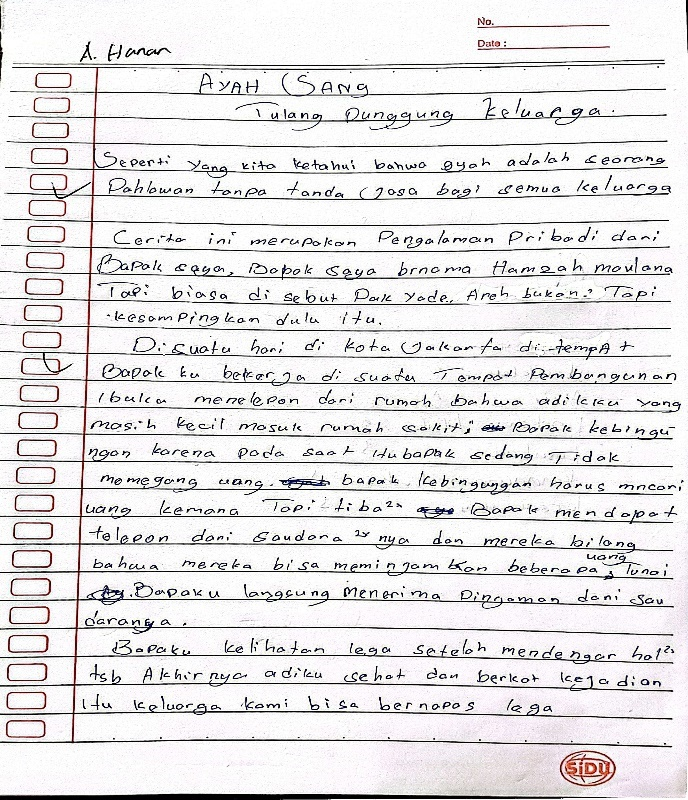 No.
Date :
A. Hanan
AYAH (SANG
Tulang Punggung Keluarga.
Seperti yang kita ketahui bahwa ayah adalah seorang
Pahlawan tanpa tanda Jasa bagi semua keluarga
Cerita ini merupakan Pengalaman Pribadi dari
Bapak saya, Bapak saya brnama Hamzah maulana
Tapi biasa di sebut Pak Yade, Aneh bukan? Tapi
kesampingkan dulu itu.
Disuatu hari di kota Jakarta di tempAt
Bapak ku bekerja di suatu Tempat Pembangunan
Ibuku menelepon dari rumah bahwa adikku yang
masih kecil masuk rumah sakit, Bapak kebingu
ngan karena pada saat itu bapak sedang Tidak
memegang uang. bapak kebingungan harus mncari
uang kemana Tapi tiba² Bapak mendapat
telepon dari Saudara ²nya dan mereka bilang
bahwa mereka bisa meminjamkan beberapa uang Tunai
. Bapaku langsung menerima Pinjaman dari sau
daranya.
Bapaku kelihatan lega setelah mendengar hal²
tsb Akhirnya adiku sehat dan berkat kejadian
Itu keluarga kami bisa bernapas lega
SiDU